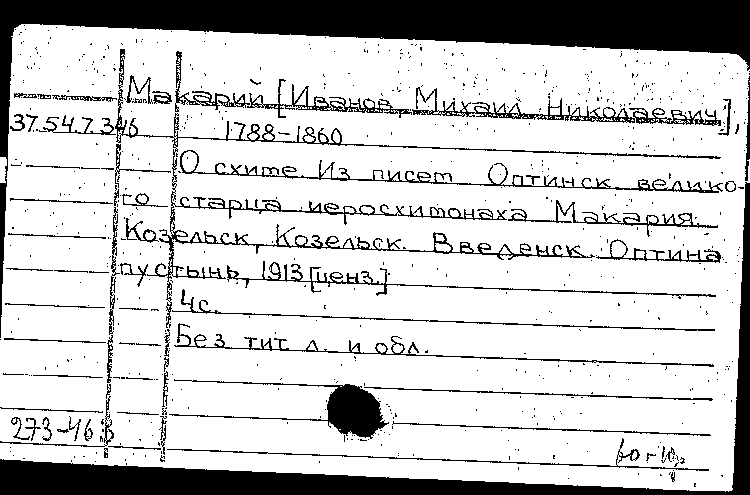 Макарий [Иванов, Михаил Николаевич],
37.54.7.346 1788-1860
О схите. Из писем Оптинск. велико-
го старца иеросхимонаха Макария.
Козельск, Козельск. Введенск. Оптина
пустынь, 1913 [ценз.]
4с.
Без тит. л. и обл.
273-463